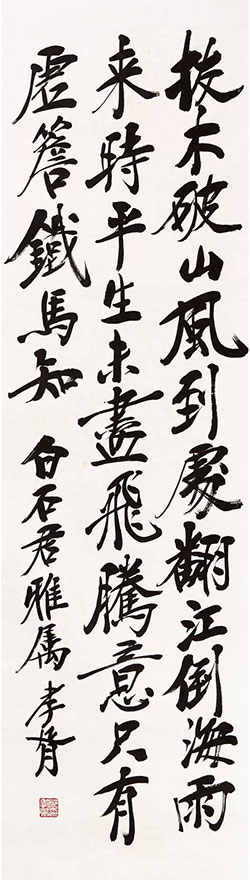 拔木破山風到處翻江倒海雨
来時平生未盡飛騰意只有
虛簷鐵馬知
白石君雅属 孝胥